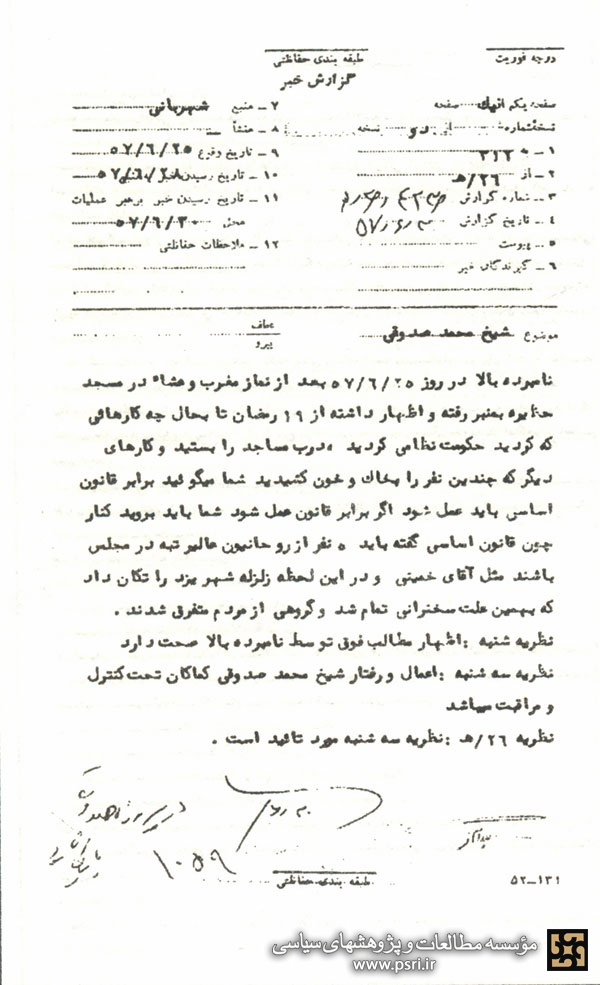 درجه فوریت
طبقه بندی حفاظتی
گزارش خبر
صفحه یکم از یک صفحه
نسخه شماره از نسخه
۱ـ به ۳۱۲
۲ـ از ۲۶/هـ
۳ـ شماره گزارش
۴ـ تاریخ گزارش
۵ـ پیوست
۶ـ گیرندگان خبر
۷ـ منبع شهربانی
۸ـ منشأ ـ
۹ـ تاریخ وقوع ۵۷/۶/۲۵
۱۰ـ تاریخ رسیدن خبر ۵۷/۶/۲۸
۱۱ـ تاریخ رسیدن خبر برهبر عملیات
محل ۵۷/۶/۳۰
۱۲ـ ملاحظات حفاظتی
موضوع شیخ محمد صدوقی
عطف
پیرو
نامبرده بالا در روز ۵۷/۶/۲۵ بعد از نماز مغرب و عشاء در مسجد
حظیره بمنبر رفته و اظهار داشته از ۱۹ رمضان تا بحال چه کارهائی
که کردید حکومت نظامی کردید ، درب مساجد را بستید و کارهای
دیگر که چندین نفر را بخاک و خون کشیدید شما میگوئید برابر قانون
اساسی باید عمل شود اگر برابر قانون عمل شود شما باید بروید کنار
چون قانون اساسی گفته باید ۵ نفر از روحانیون عالیرتبه در مجلس
باشند مثل آقای خمینی و در این لحظه زلزله شهر یزد را تکان داد
که بهمین علت سخنرانی تمام شد و گروهی از مردم متفرق شدند .
نظریه شنبه : اظهار مطالب فوق توسط نامبرده بالا صحت دارد
نظریه سه شنبه : اعمال و رفتار شیخ محمد صدوقی کماکان تحت کنترل
و مراقبت میباشد
نظریه ۲۶/هـ : نظریه سه شنبه مورد تائید است .
۱۰۵۹
طبقه بندی حفاظتی
۵۲ـ۱۳۱
مؤسسه مطالعات و پژوهشهای سیاسی
www.psri.ir